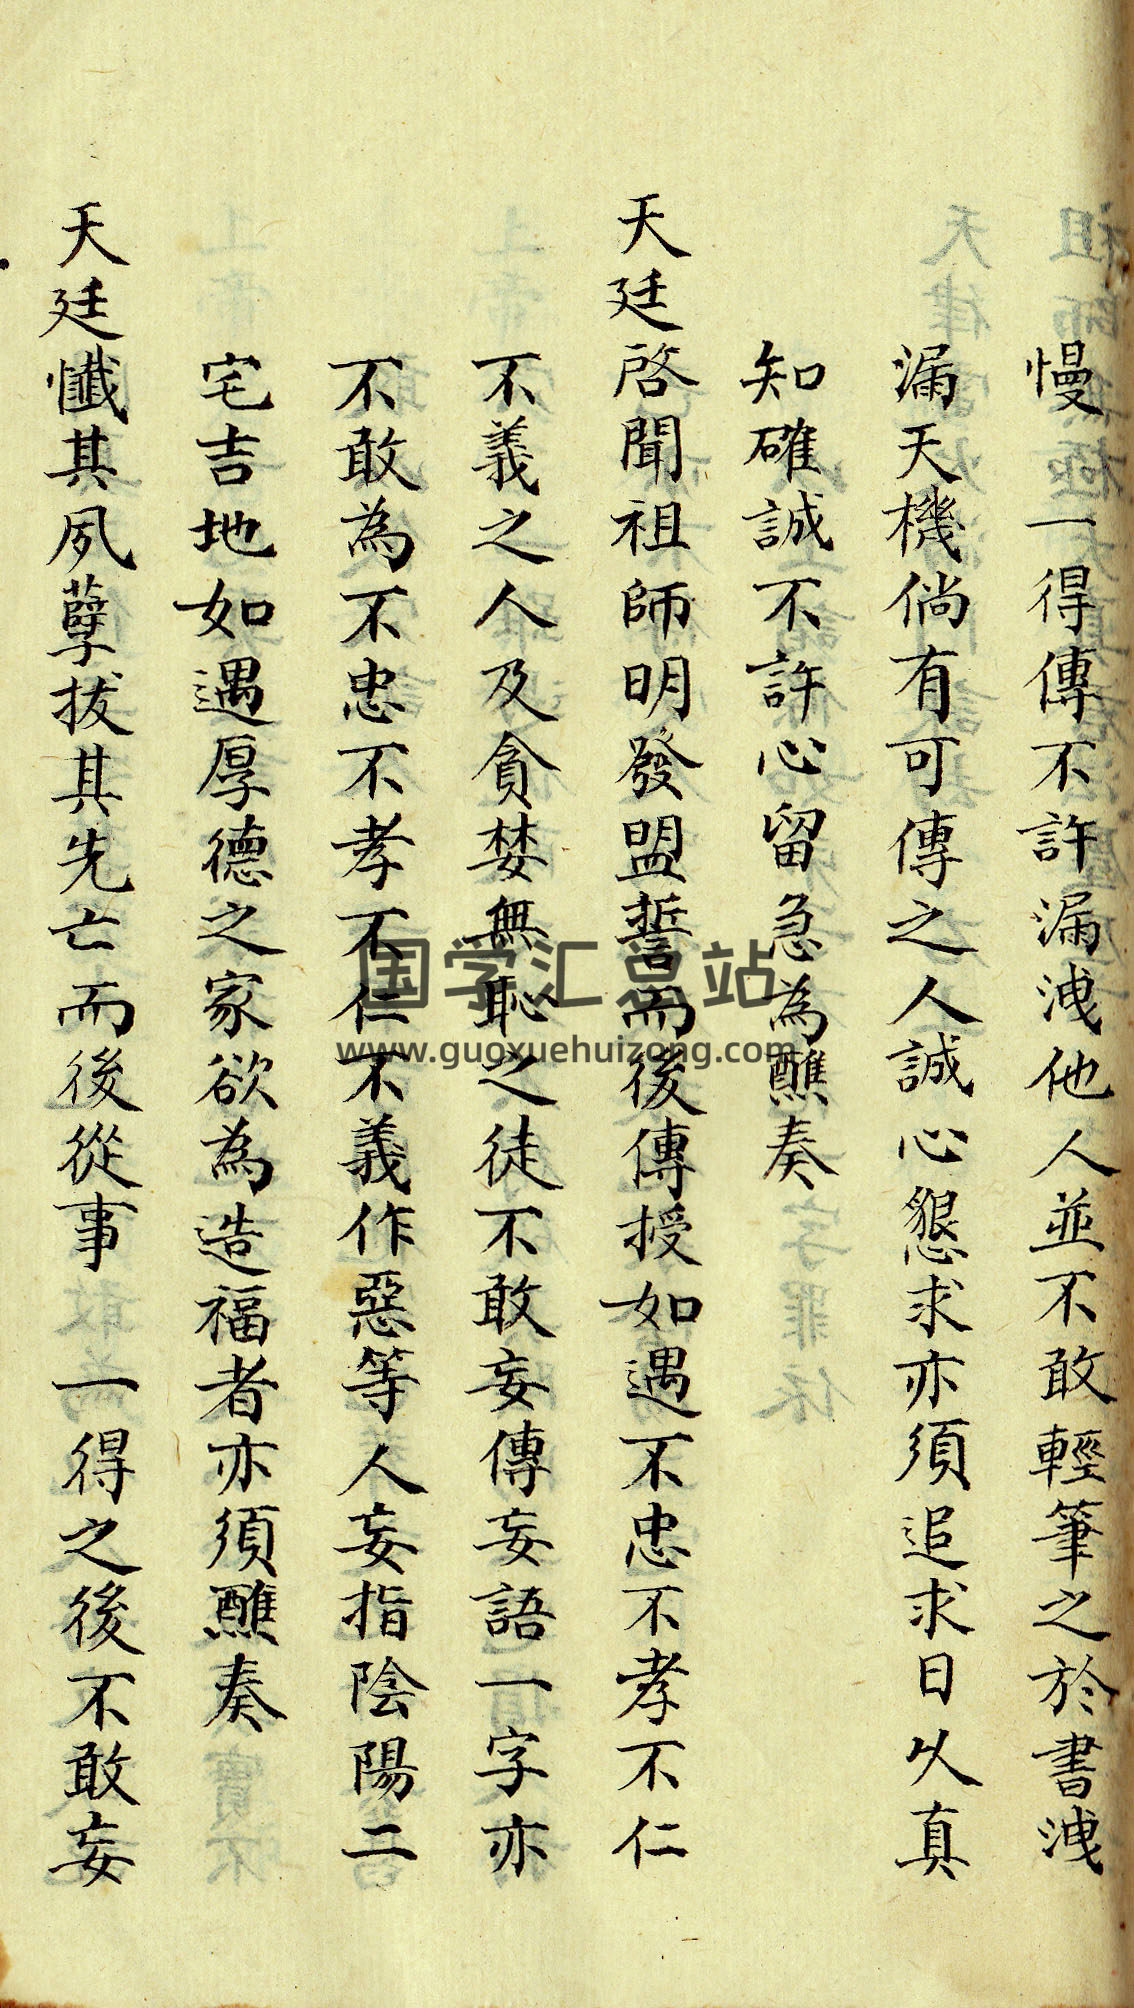 慢一得傳不許漏洩他人並不敢輕筆之於書洩
漏天機倘有可傳之人誠心懇求亦須追求日久真
知確誠不許心留急為醮奏
天廷啓聞祖師明發盟誓而後傳授如遇不忠不孝不仁
不義之人及貪婪無恥之徒不敢妄傳妄語一字亦
不敢為不忠不孝不仁不義作惡等人妄指陰陽二
宅吉地如遇厚德之家欲為造福者亦須醮奏
天廷懺其夙孽拔其先亡而後從事一得之後不敢妄
国学汇总站
www.guoxuehuizong.com